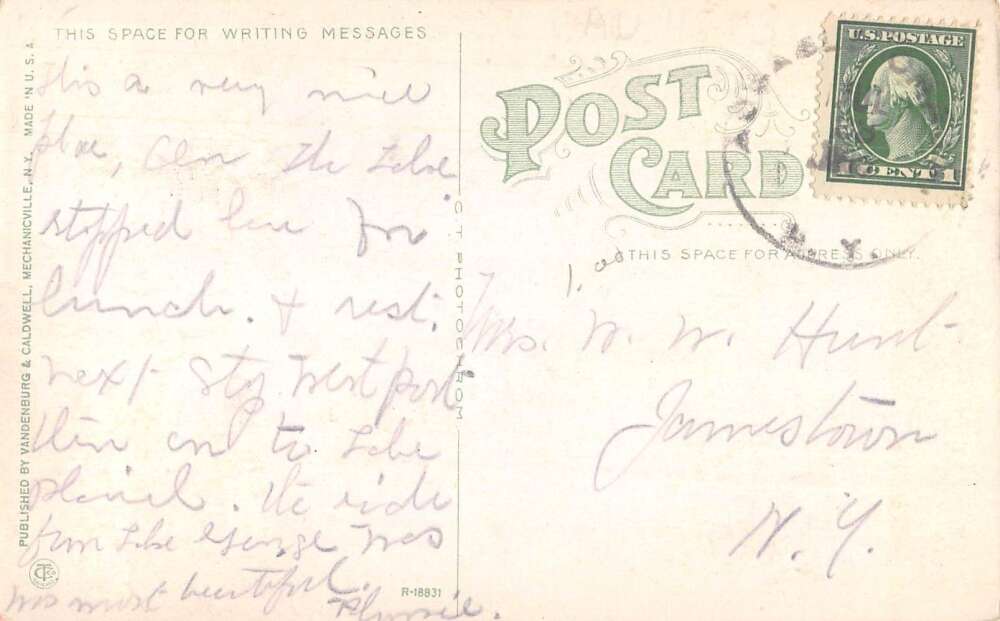 THIS SPACE FOR WRITING MESSAGES
This a very nice
place, On the Lake
stopped here for
lunch. & rest.
next stop Westport
then on to Lake
Placid. The ride
from Lake George was
was most beautiful.
PUBLISHED BY VANDENBURG & CALDWELL, MECHANICVILLE, N.Y. MADE IN U.S.A.
C.T. PHOTOCHROM
R-18831
POST
CARD
THIS SPACE FOR ADDRESS ONLY.
U.S. POSTAGE
1 CENT 1
Mrs. W. W. Hunt
Jamestown
N. Y.